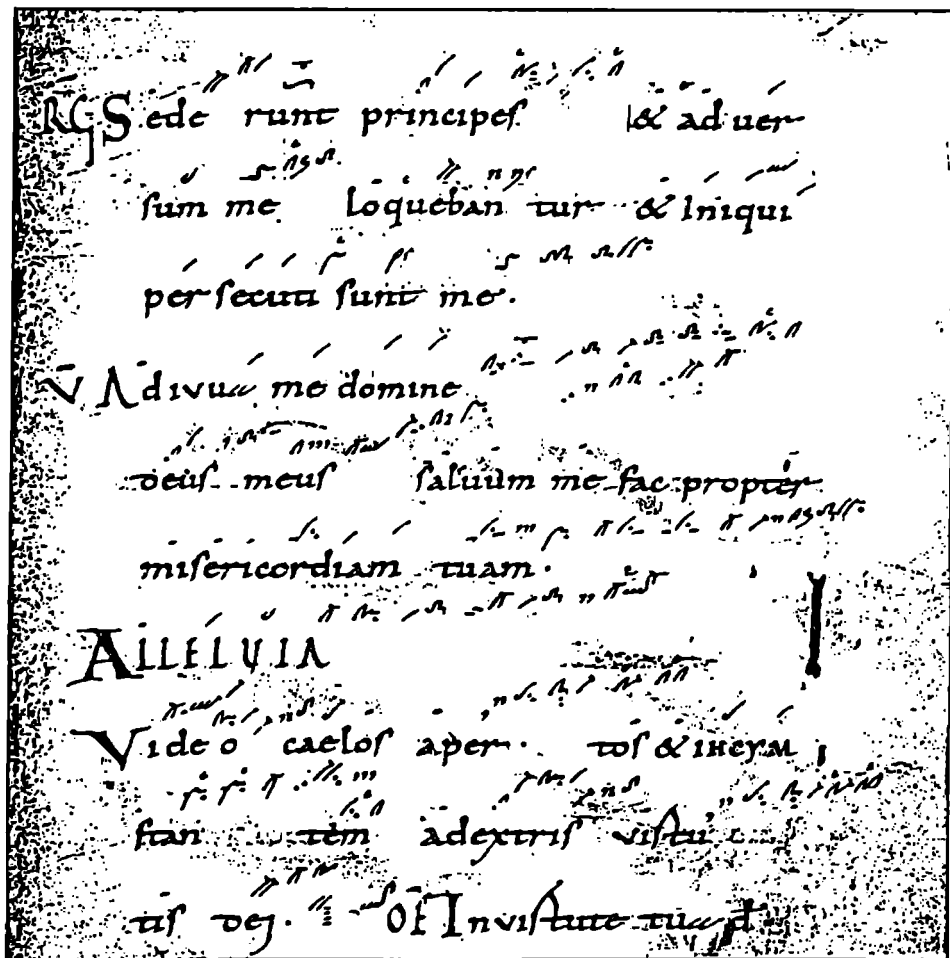 RG Sede runt principes & aduer
sum me loqueban tur & Iniqui
per secuti sunt me.
V Adiuua me domine
deus meus saluum me fac propter
misericordiam tuam.
ALLELUIA
Video caelos aper. tos & ihesum
stan tem adextris virtu
tis dei. OF In virtute tua d